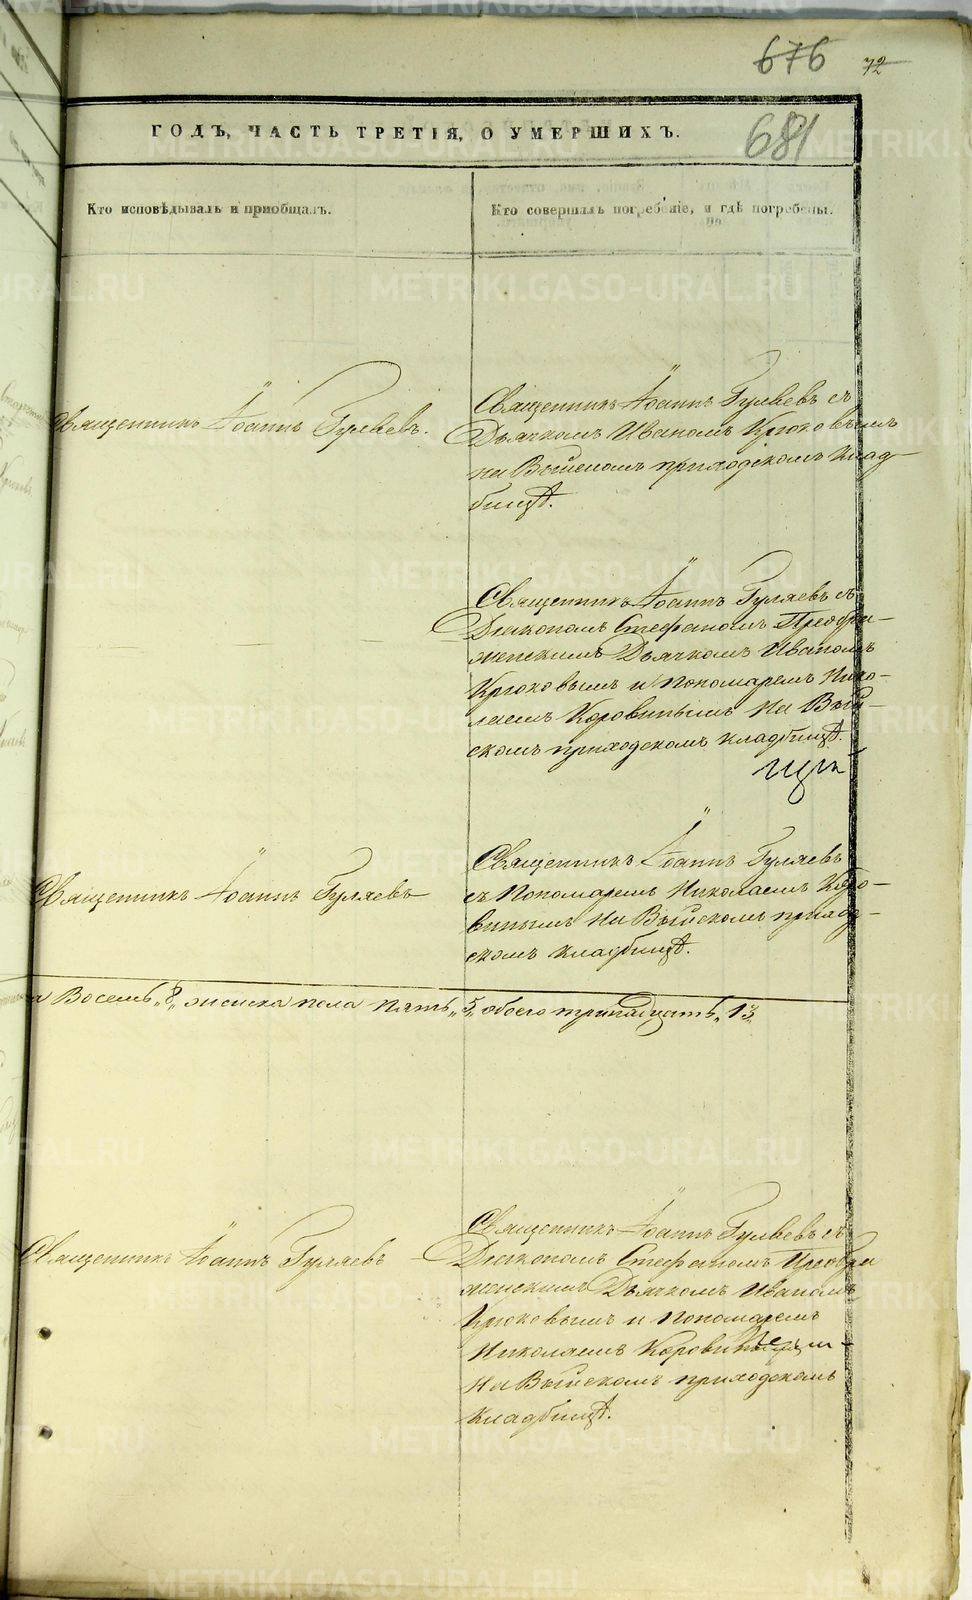 676 72
681
ГОДЪ, ЧАСТЬ ТРЕТІЯ, О УМЕРШИХЪ.
Кто исповѣдывалъ и пріобщалъ.
Кто совершалъ погребеніе, и гдѣ погребены.
Священникъ Іоаннъ Гуляевъ.
Священникъ Іоаннъ Гуляевъ съ
Дьячкомъ Иваномъ Крюковымъ
на Выйскомъ приходскомъ клад-
бищѣ.
Священникъ Іоаннъ Гуляевъ съ
Діакономъ Стефаномъ Преобра-
женскимъ Дьячкомъ Иваномъ
Крюковымъ и Пономаремъ Нико-
лаемъ Коровинымъ на Вый-
скомъ приходскомъ кладбищѣ.
Священникъ Іоаннъ Гуляевъ
Священникъ Іоаннъ Гуляевъ
съ Пономаремъ Николаемъ Коро-
винымъ на Выйскомъ приход-
скомъ кладбищѣ.
а Восемь „8„ женска пола пять „5„ обоего тринадцать „13„
Священникъ Іоаннъ Гуляевъ
Священникъ Іоаннъ Гуляевъ съ
Діакономъ Стефаномъ Преобра
женскимъ Дьячкомъ Иваномъ
Крюковымъ и Пономаремъ
Николаемъ
на Выйскомъ приходскомъ
кладбищѣ.
METRIKI.GASO-URAL.RU